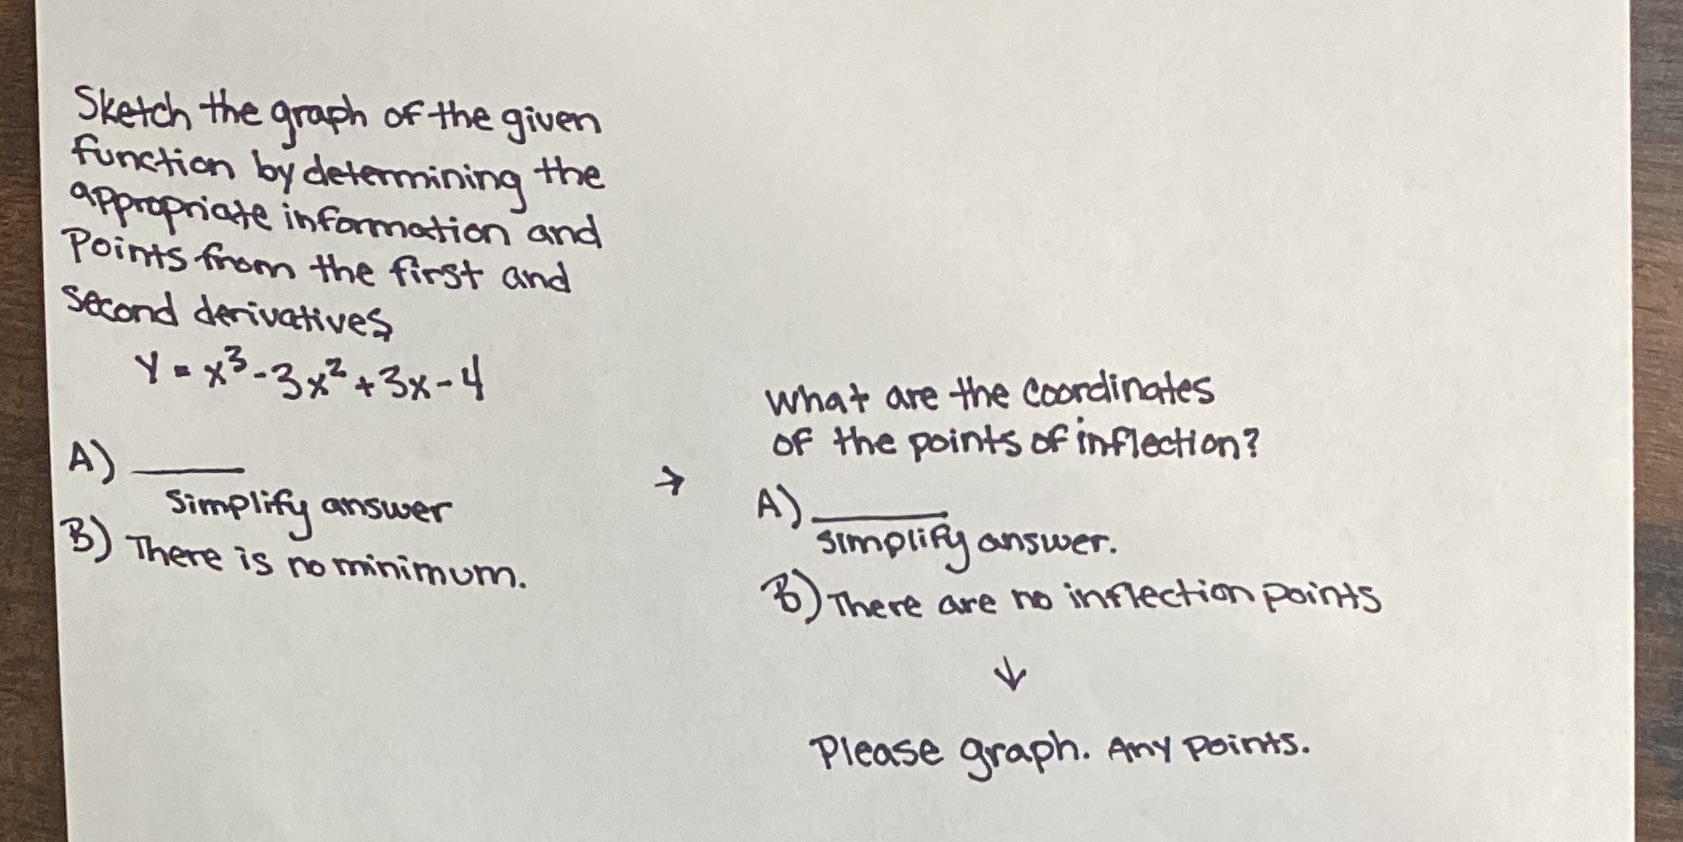 Sketch the graph of the given
function by determining the
appropriate information and
Points from the first and
second derivatives
Y = x³-3x²+3x-4
A) ____
simplify answer
B) There is no minimum.
→
What are the coordinates
of the points of inflection?
A) ____
simplify answer.
B) There are no inflection points
↓
Please graph. Any Points.